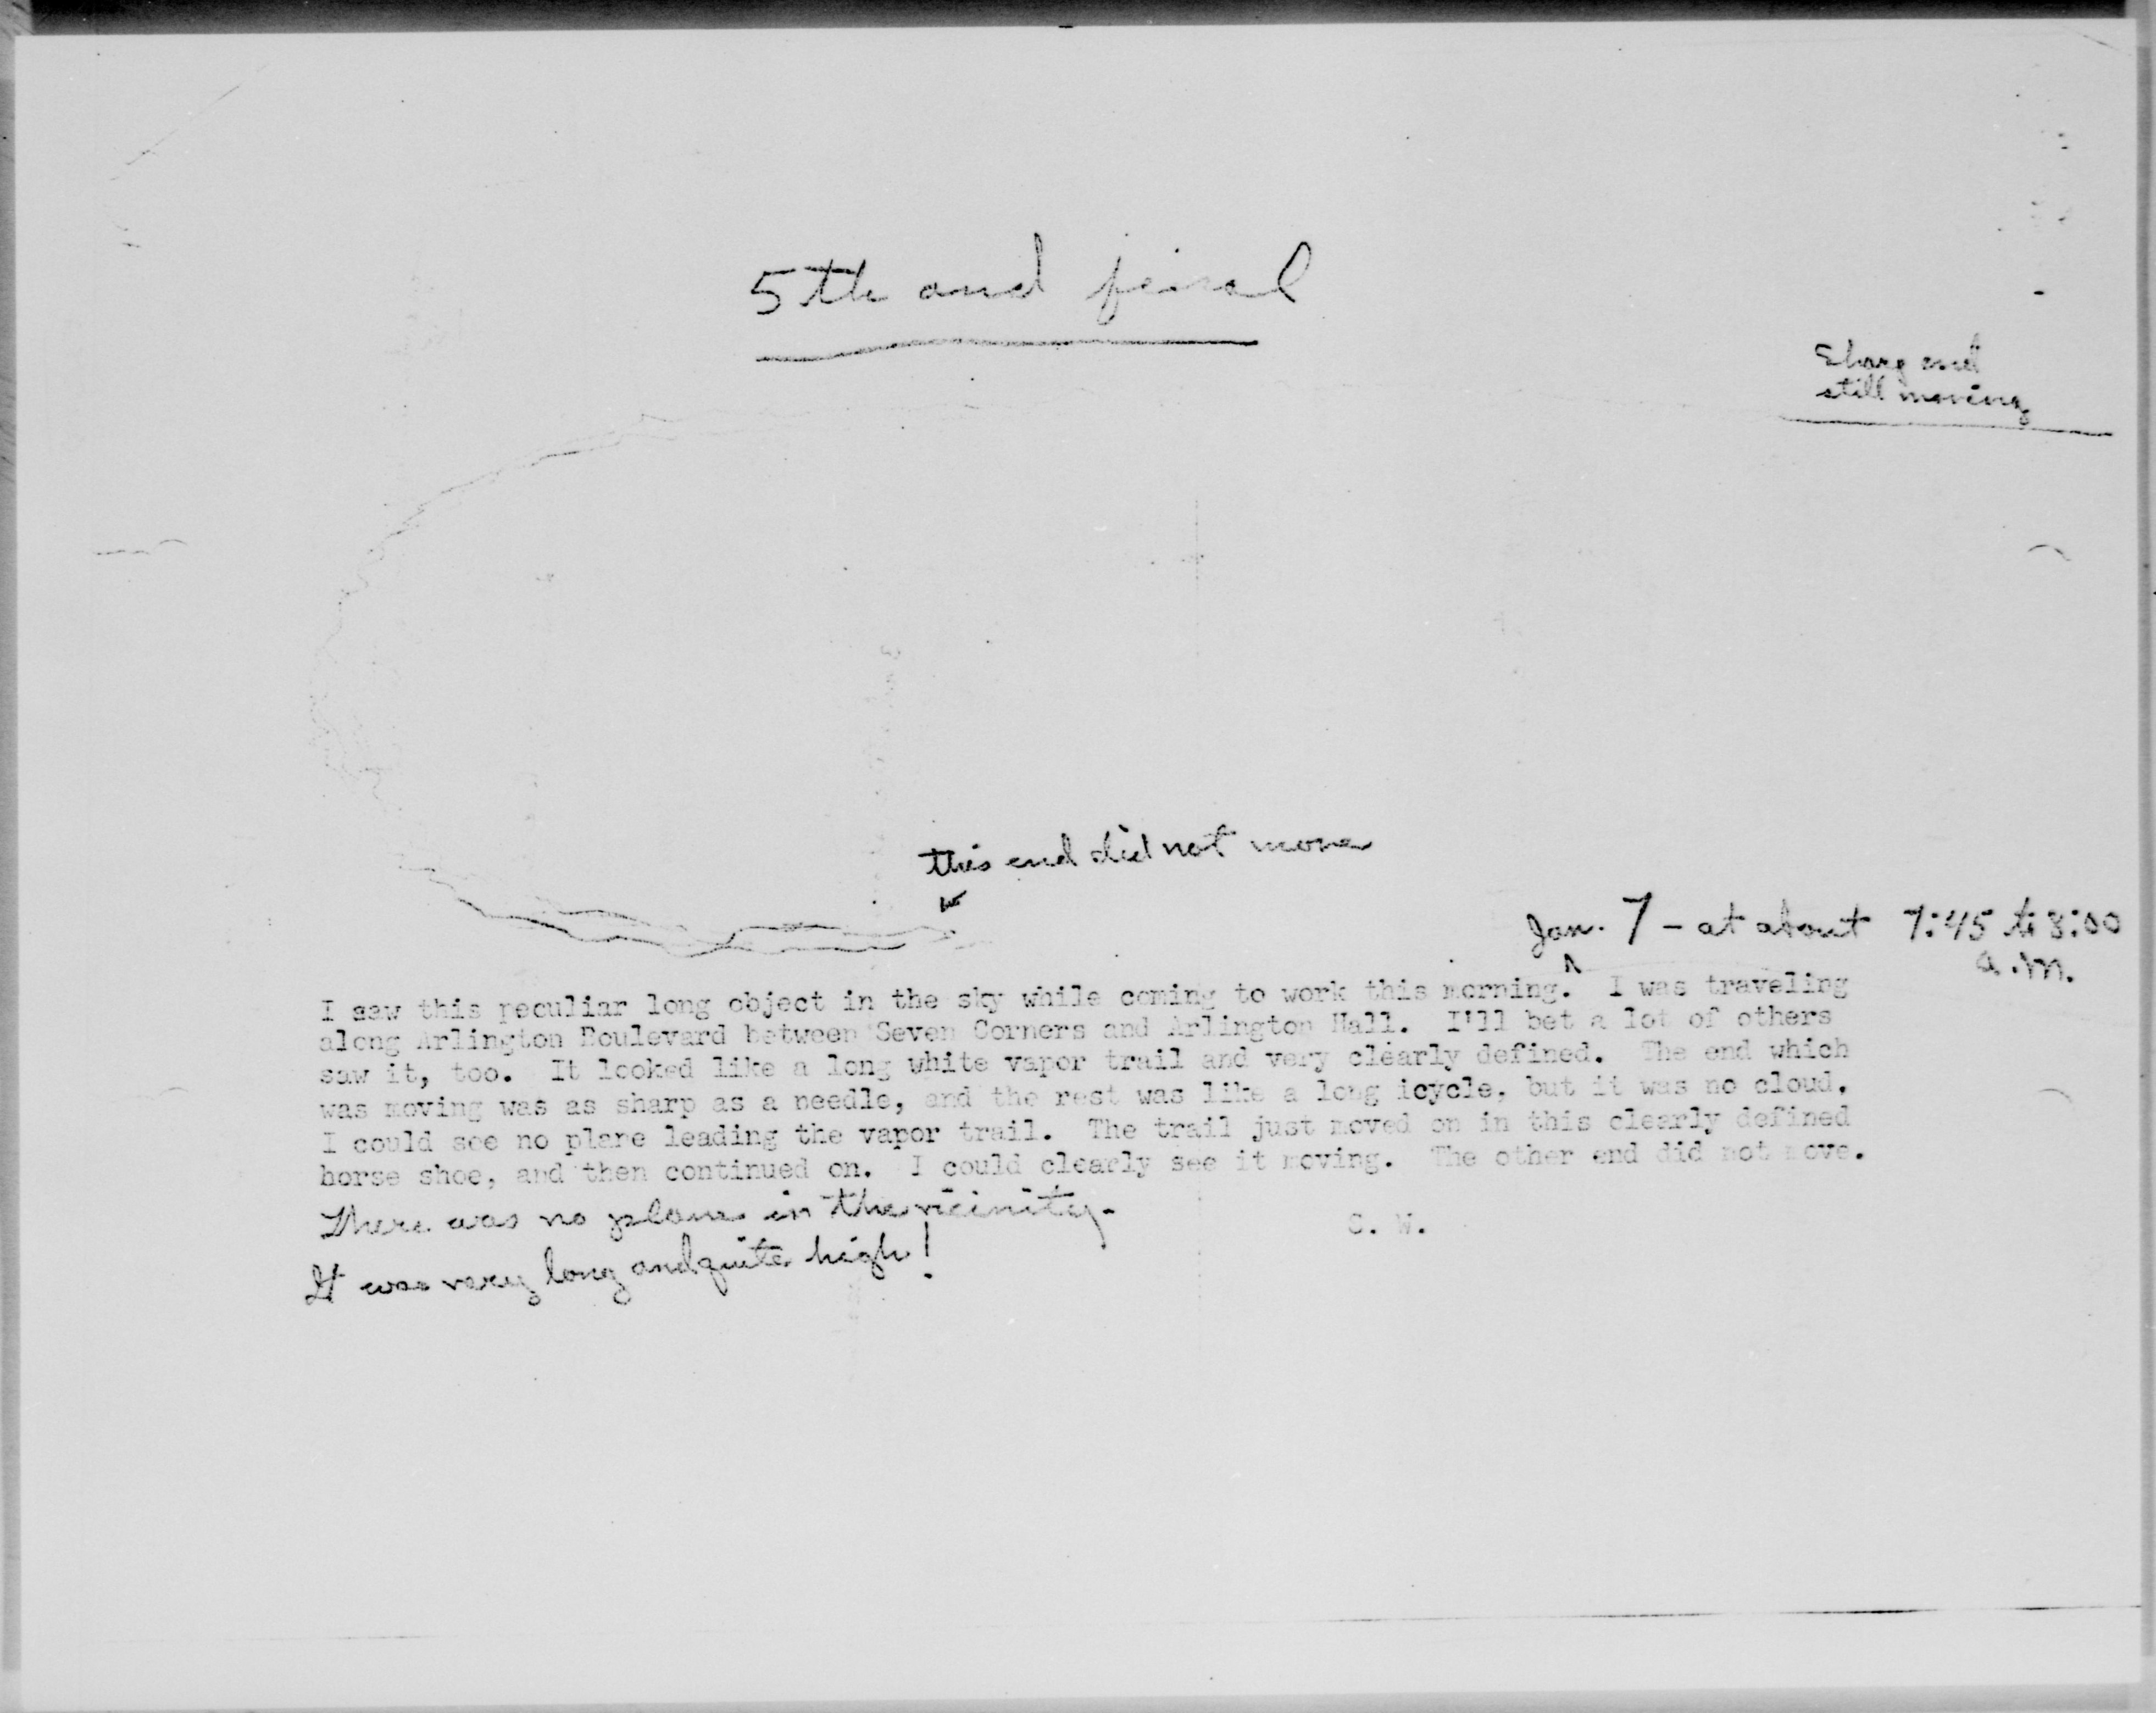 5th and final
Sharp end
still moving
this end did not move
Jan. 7 - at about 7:45 to 8:00
a.m.
I saw this peculiar long object in the sky while coming to work this morning. I was traveling
along Arlington Boulevard between Seven Corners and Arlington Hall. I'll bet a lot of others
saw it, too. It looked like a long white vapor trail and very clearly defined. The end which
was moving was as sharp as a needle, and the rest was like a long icycle, but it was no cloud.
I could see no plane leading the vapor trail. The trail just moved on in this clearly defined
horse shoe, and then continued on. I could clearly see it moving. The other end did not move.
There was no plane in the vicinity.
S. W.
It was very long and quite high!